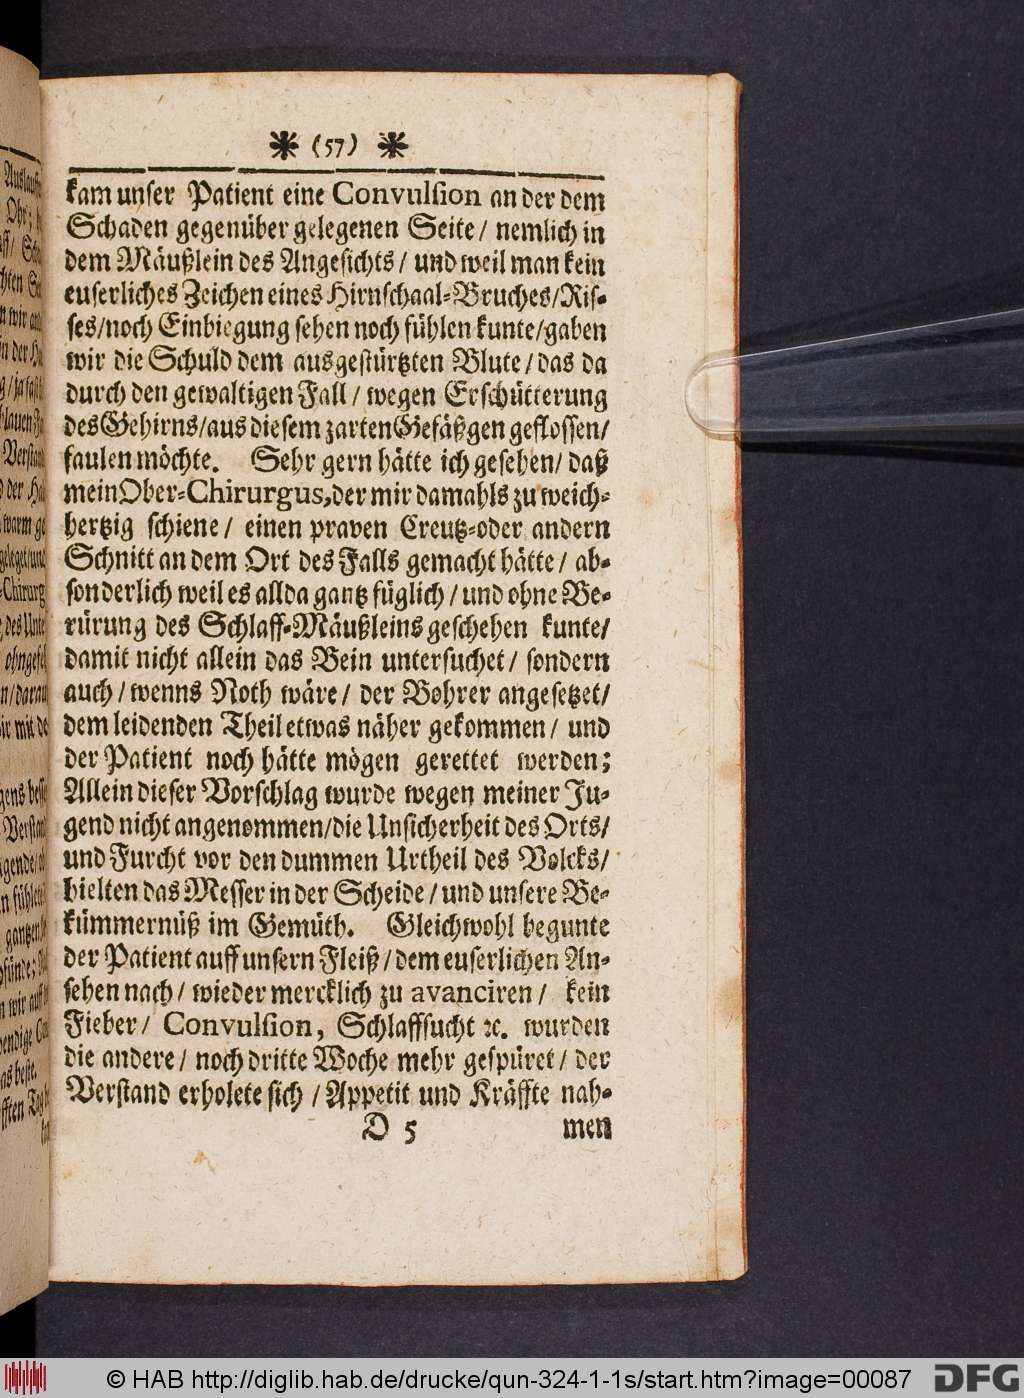 (57)
kam unser Patient eine Convulsion an der dem
Schaden gegenüber gelegenen Seite / nemlich in
dem Mäußlein des Angesichts / und weil man kein
euserliches Zeichen eines Hirnschaal-Bruches/Ris-
ses/noch Einbiegung sehen noch fühlen kunte/gaben
wir die Schuld dem ausgestürtzten Blute / das da
durch den gewaltigen Fall / wegen Erschütterung
des Gehirns/aus diesem zarten Gefäßgen geflossen/
faulen möchte. Sehr gern hätte ich gesehen/ daß
mein Ober-Chirurgus, der mir damahls zu weich-
hertzig schiene / einen praven Creutz-oder andern
Schnitt an dem Ort des Falls gemacht hätte / ab-
sonderlich weil es allda gantz füglich / und ohne Be-
rürung des Schlaff-Mäußleins geschehen kunte/
damit nicht allein das Bein untersuchet / sondern
auch / wenns Noth wäre / der Bohrer angesetzet/
dem leidenden Theil etwas näher gekommen / und
der Patient noch hätte mögen gerettet werden;
Allein dieser Vorschlag wurde wegen meiner Ju-
gend nicht angenommen/die Unsicherheit des Orts/
und Furcht vor den dummen Urtheil des Volcks/
hielten das Messer in der Scheide / und unsere Be-
kümmernüß im Gemüth. Gleichwohl begunte
der Patient auff unsern Fleiß / dem euserlichen An-
sehen nach / wieder mercklich zu avanciren / kein
Fieber / Convulsion, Schlaffsucht ꝛc. wurden
die andere / noch dritte Woche mehr gespüret / der
Verstand erholete sich / Appetit und Kräffte nah-
D 5 men
© HAB http://diglib.hab.de/drucke/qun-324-1-1s/start.htm?image=00087
DFG